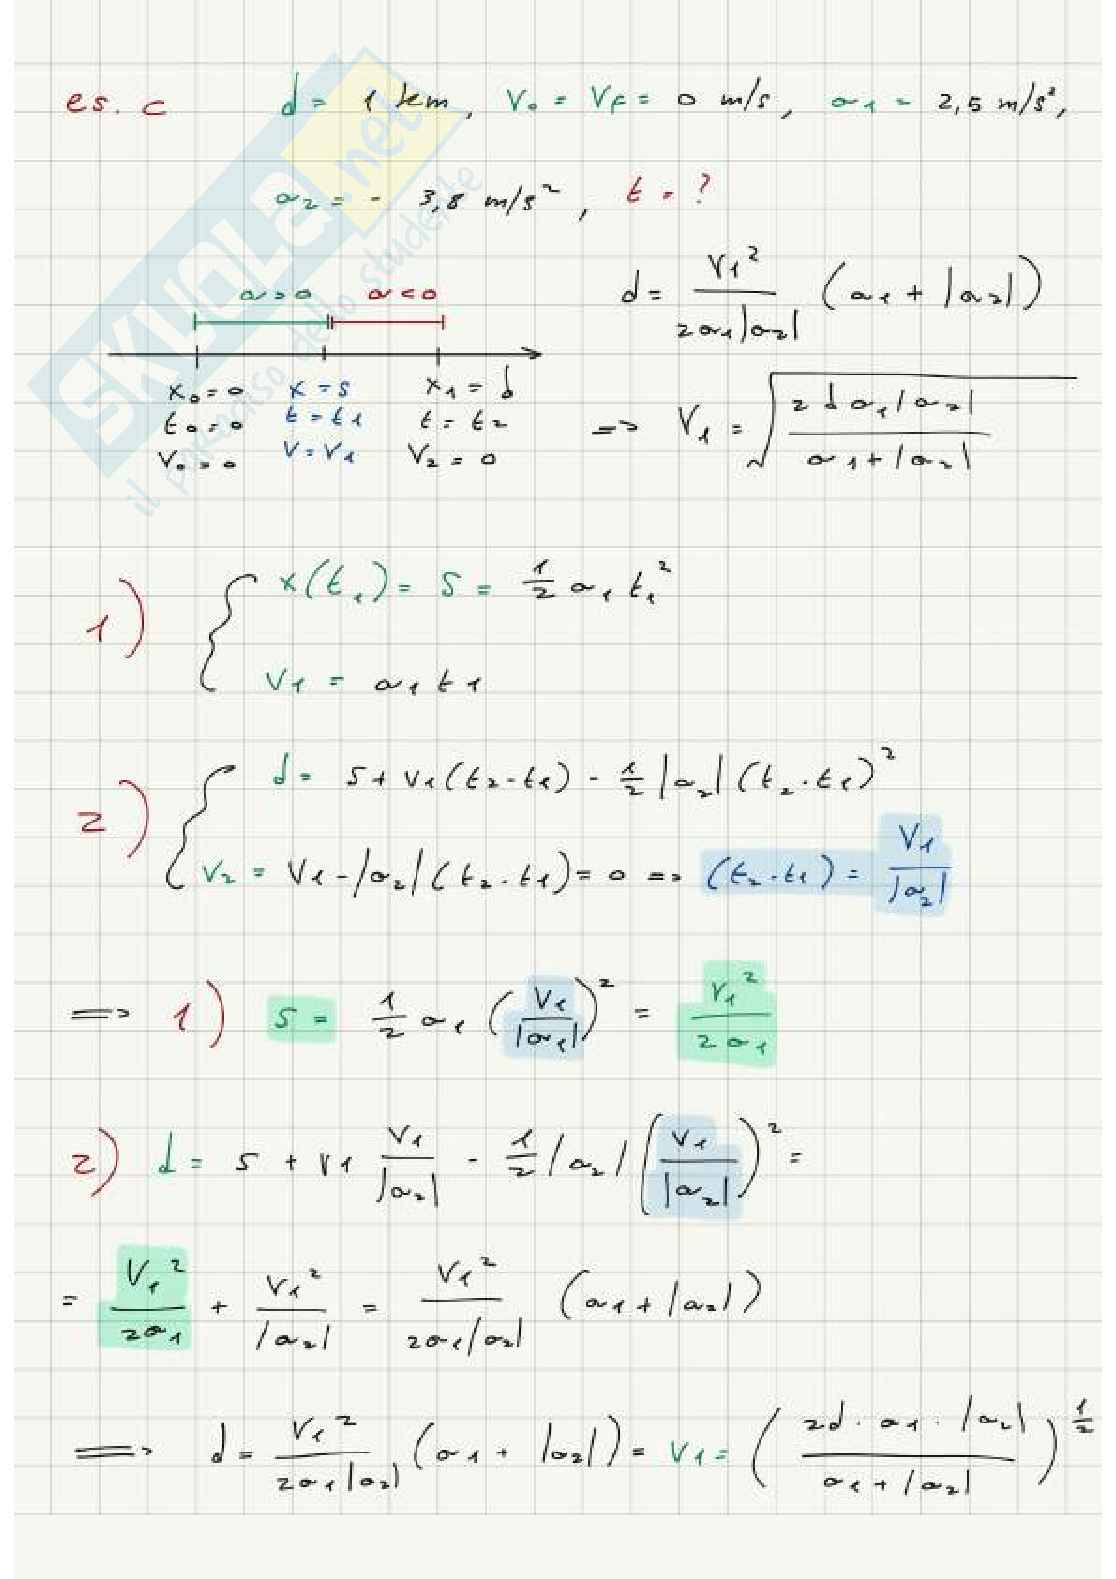 es. c d = 1 km, V₀ = V_F = 0 m/s, a₁ = 2,5 m/s²,
a₂ = - 3,8 m/s², t = ?
SKUOLA.net
il paradiso dello studente
a>0 a<0
x₀=0 x=s x₁=d
t₀=0 t=t₁ t=t₂
V₀=0 V=V₁ V₂=0
d = V₁²/(2a₁|a₂|) (a₁ + |a₂|)
=> V₁ = √(2da₁|a₂|/(a₁+|a₂|))
1) { x(t₁) = s = 1/2 a₁ t₁²
V₁ = a₁ t₁
2) { d = s + V₁(t₂-t₁) - 1/2 |a₂| (t₂-t₁)²
V₂ = V₁ - |a₂| (t₂-t₁) = 0 => (t₂-t₁) = V₁/|a₂|
=> 1) s = 1/2 a₁ (V₁/|a₁|)² = V₁²/(2a₁)
2) d = s + V₁ V₁/|a₂| - 1/2 |a₂| (V₁/|a₂|)² =
= V₁²/(2a₁) + V₁²/|a₂| = V₁²/(2a₁|a₂|) (a₁+|a₂|)
=> d = V₁²/(2a₁|a₂|) (a₁ + |a₂|) = V₁ = (2d·a₁·|a₂|/(a₁+|a₂|))^(1/2)